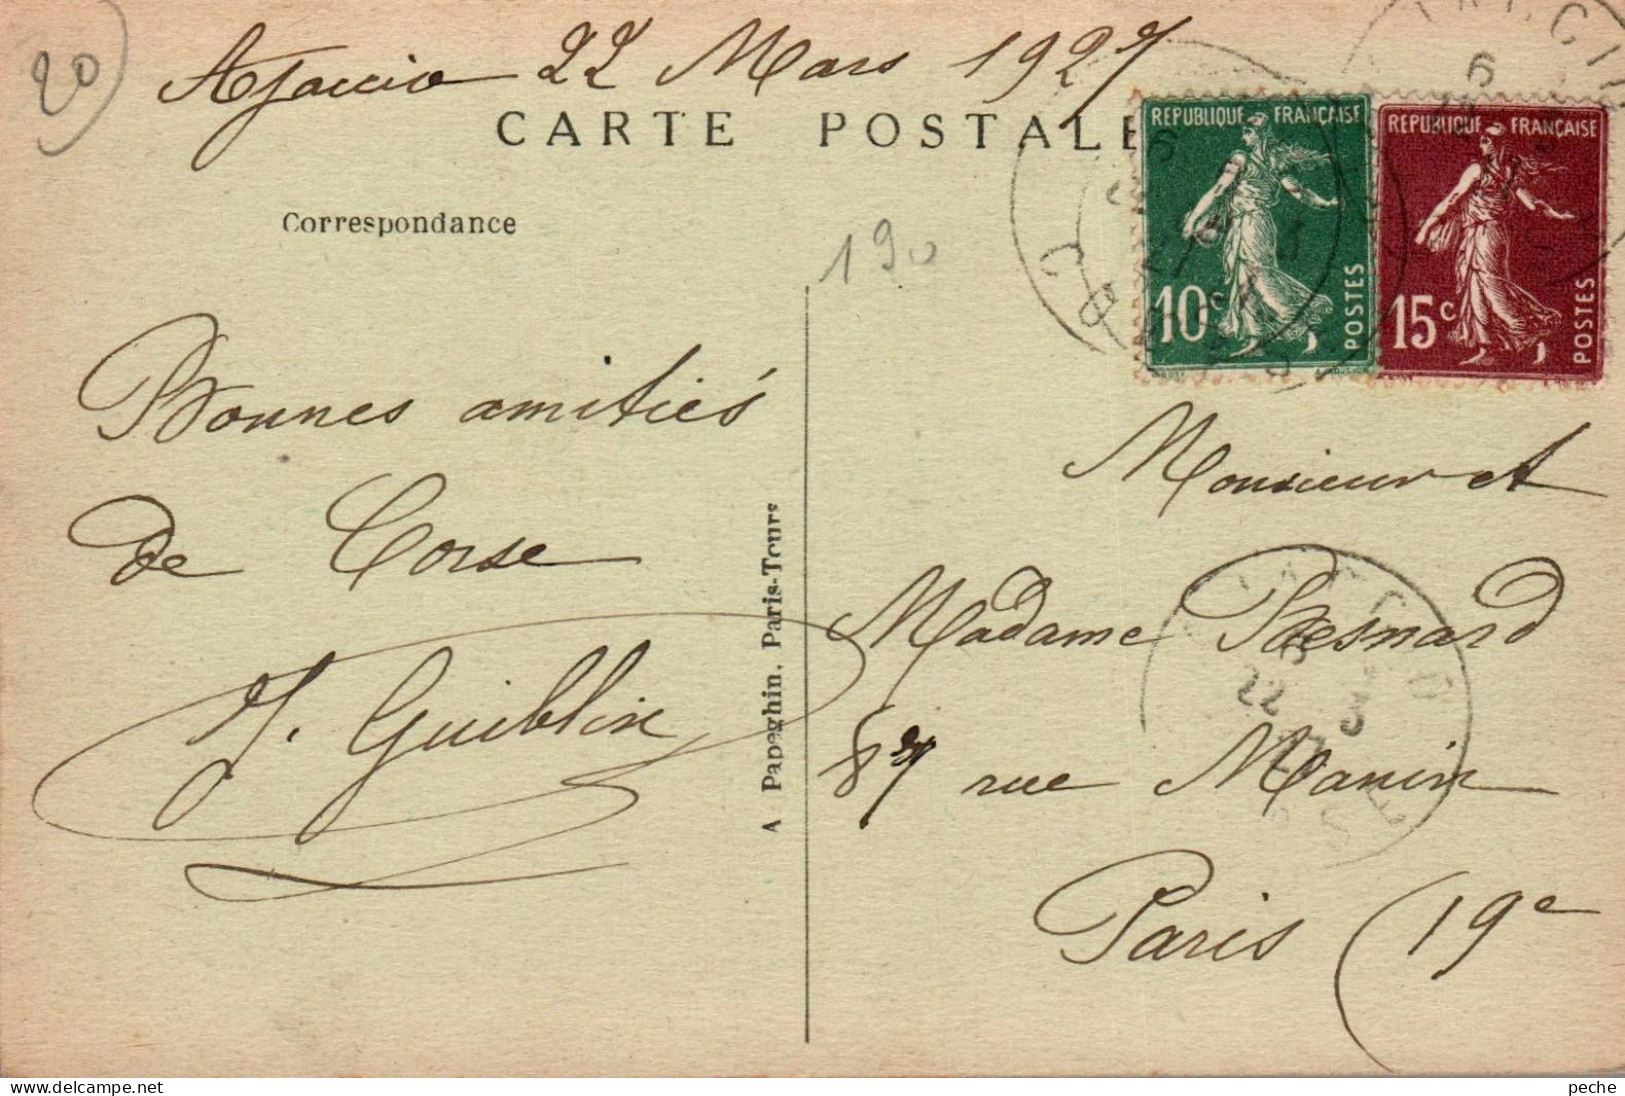 20
Ajaccio 22 Mars 1927
CARTE POSTALE
REPUBLIQUE FRANÇAISE
10c
POSTES
REPUBLIQUE FRANÇAISE
15c
POSTES
Correspondance
190
Bonnes amitiés
de Corse
J. Guiblin
A Papeghin. Paris-Tours
Monsieur et
Madame Besnard
87 rue Manin
Paris (19e
www.delcampe.net
peche